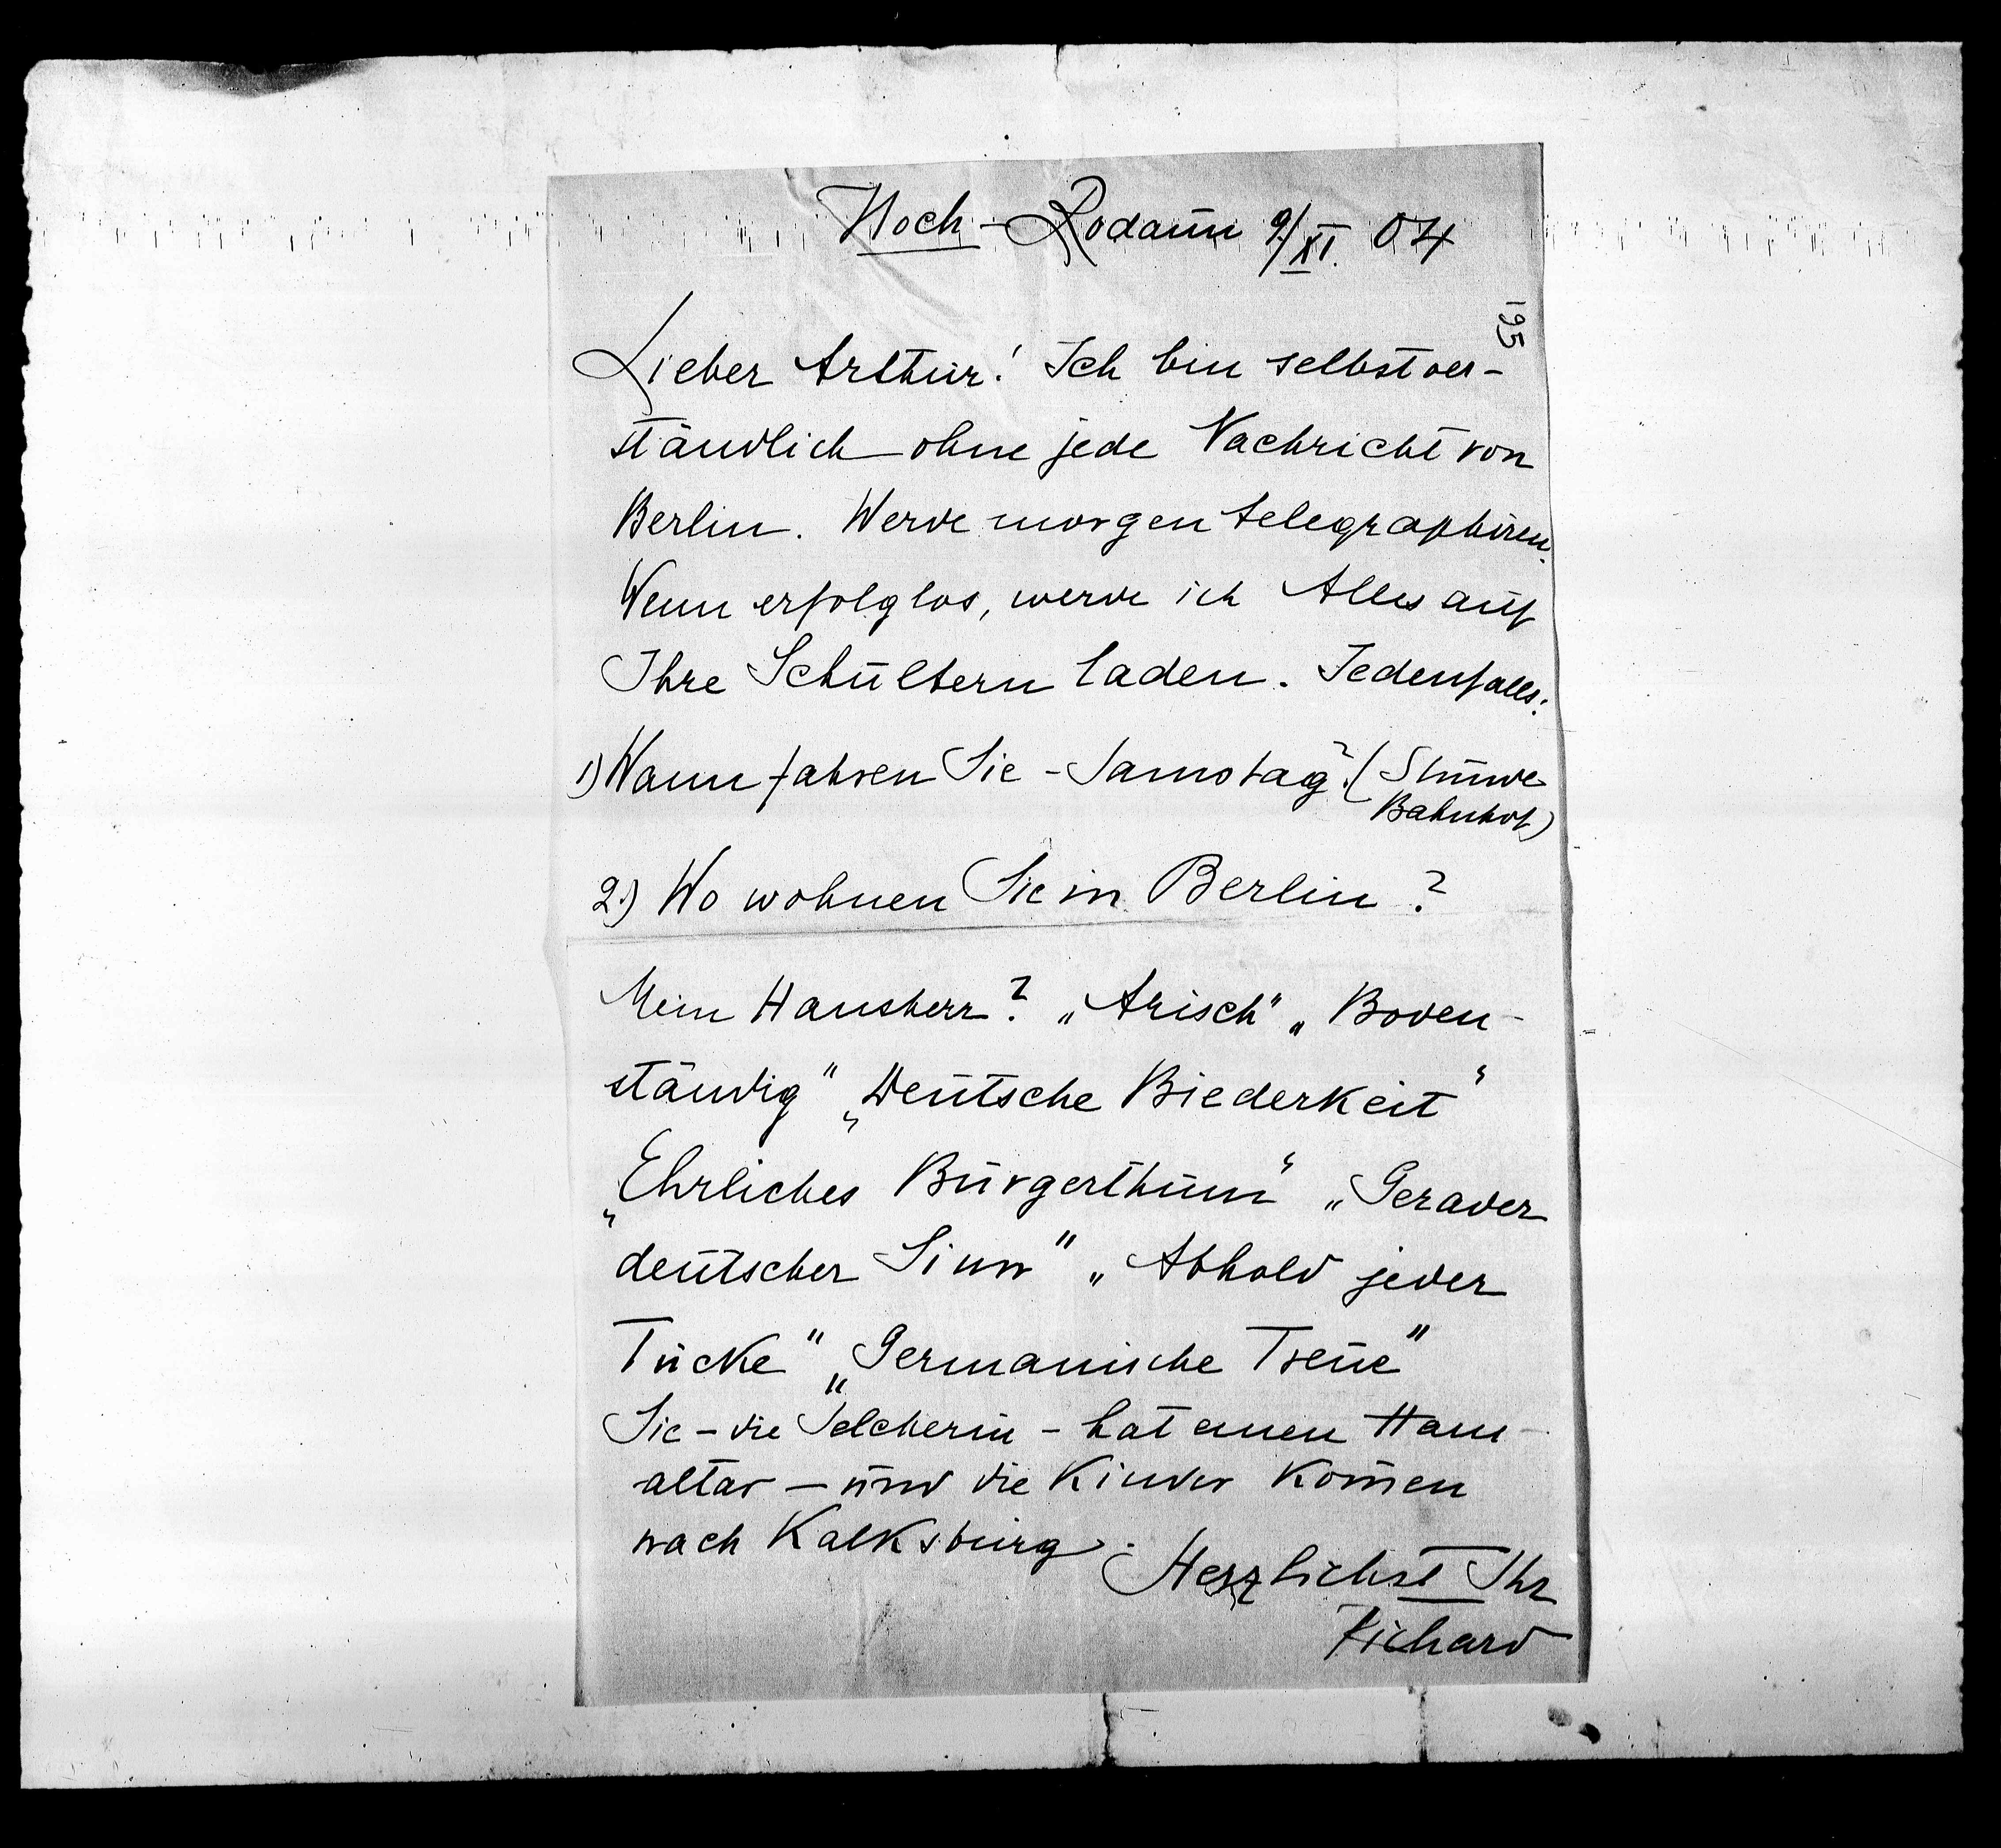 Noch – Rodaun 9/XI. 04
195
Lieber Arthur! Ich bin selbstver-
ständlich ohne jede Nachricht von
Berlin. Werde morgen telegraphiren.
Wenn erfolglos, werde ich Alles auf
Ihre Schultern laden. Jedenfalls:
1) Wann fahren Sie – Samstag? (Stunde
Bahnhof)
2.) Wo wohnen Sie in Berlin?
Mein Hausherr? „Arisch“ „Boden-
ständig“ „Deutsche Biederkeit“
„Ehrliches Bürgerthum“ „Gerader
deutscher Sinn“ „Abhold jeder
Tücke“ „Germanische Treue“
Sie – die Selcherin – hat einen Haus-
altar – und die Kinder kom̄en
nach Kalksburg.
Herzlichst Ihr
Richard